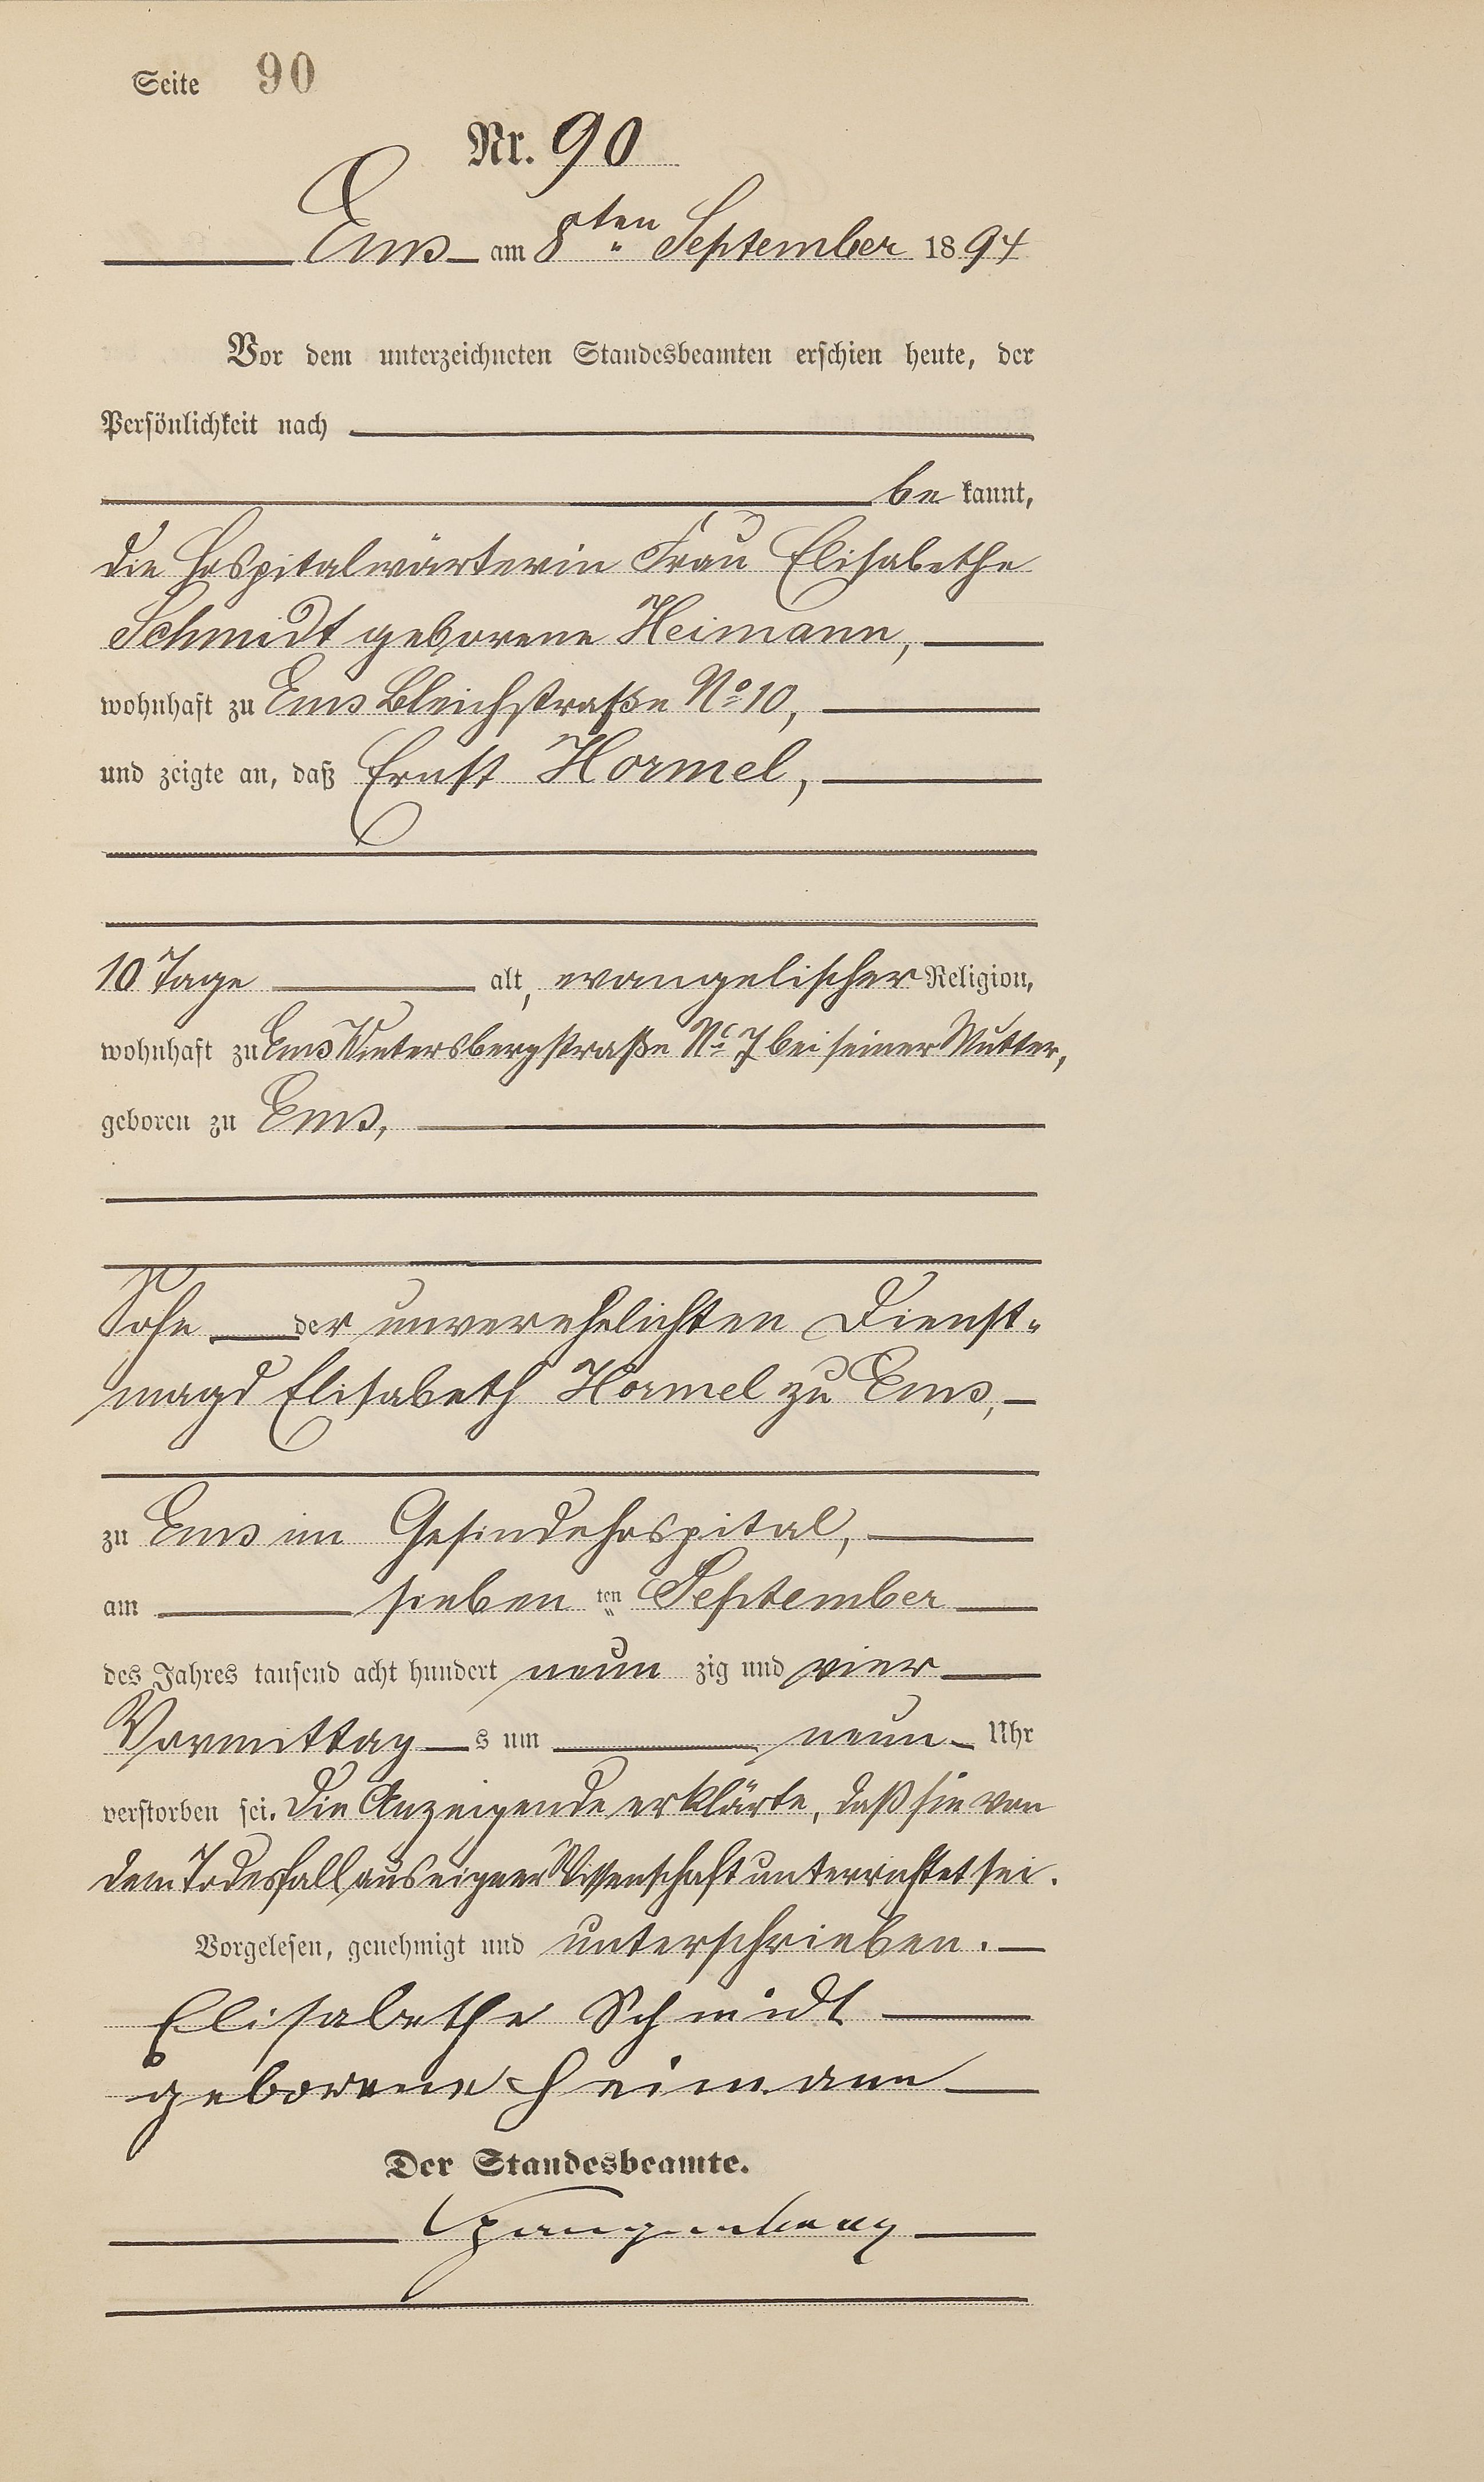 Seite 90
Nr. 90
Ems am 8ten September 1894
Vor dem unterzeichneten Standesbeamten erschien heute, der
Persönlichkeit nach
be kannt,
die Hospitalwärterin Frau Elisabethe
Schmidt geborene Heimann,
wohnhaft zu Ems Bleichstraße No 10,
und zeigte an, daß Ernst Hormel,
10 Tage alt, evangelischer Religion,
wohnhaft zu Ems Wintersbergstraße No 7 bei seiner Mutter,
geboren zu Ems,
Sohn der unverehelichten Dienst-
magd Elisabeth Hormel zu Ems,
zu Ems im Gesindehospital,
am sieben ten September
des Jahres tausend acht hundert neun zig und vier
Vormittag s um neun Uhr
verstorben sei. Die Anzeigende erklärte, daß sie von
dem Todesfall aus eigner Wissenschaft unterrichtet sei.
Vorgelesen, genehmigt und unterschrieben.
Elisabethe Schmidt
geborene Heimann
Der Standesbeamte.